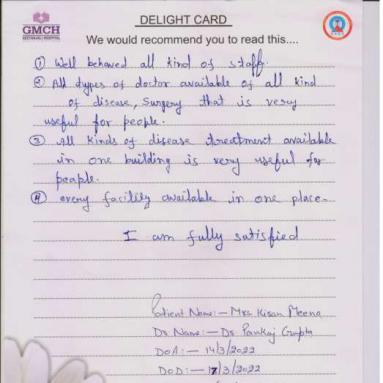 GMCH
GEETANJALI HOSPITAL
DELIGHT CARD
We would recommend you to read this....
① Well behaved all kind of staff.
② All types of doctor available of all kind
of disease, Surgery that is very
useful for people.
③ All kinds of disease treatment available
in one building is very useful for
people.
④ every facility available in one place.
I am fully satisfied
Patient Name:- Mrs Kisan Meena
Dr Name:- Dr Pankaj Gupta
DOA:- 14/3/2022
DOD:- 17/3/2022